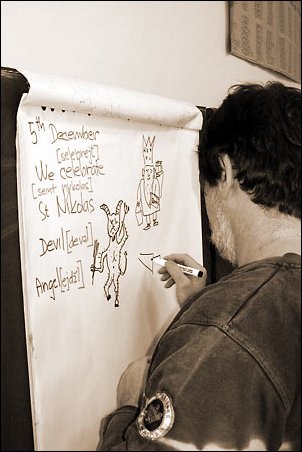 5th December
[selebreit]
We celebrate
[seint nikolas]
St Nikolas
Devil [devəl]
Angel [eindʒl]